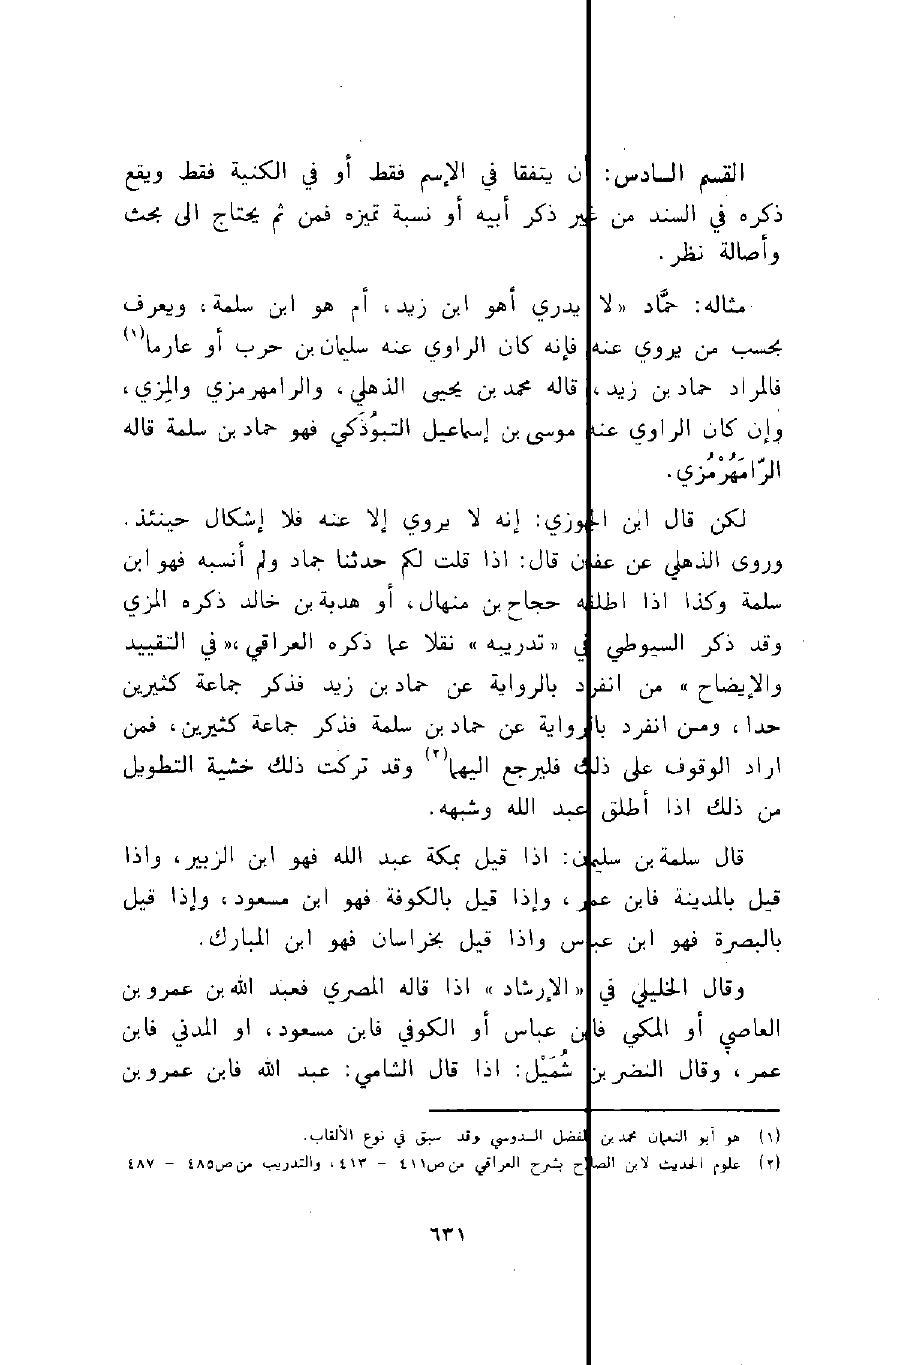 القسم السادس: أن يتفقا في الإسم فقط أو في الكنية فقط ويقع
ذكره في السند من غير ذكر أبيه أو نسبة تميزه فمن ثم يحتاج الى بحث
وأصالة نظر.
مثاله: حمَّاد «لا يدري أهو ابن زيد، أم هو ابن سلمة، ويعرف
بحسب من يروي عنه فإنه كان الراوي عنه سليمان بن حرب أو عارما(١)
فالمراد حماد بن زيد، قاله محمد بن يحيى الذهلي، والرامهرمزي والمزي،
وإن كان الراوي عنه موسى بن إسماعيل التبوُذَكي فهو حماد بن سلمة قاله
الرّامَهُرْمُزي.
لكن قال ابن الجوزي: إنه لا يروي إلا عنه فلا إشكال حينئذ.
وروى الذهلي عن عفان قال: اذا قلت لكم حدثنا حماد ولم أنسبه فهو ابن
سلمة وكذا اذا اطلقه حجاج بن منهال، أو هدبة بن خالد ذكره المزي
وقد ذكر السيوطي في «تدريبه» نقلا عما ذكره العراقي،«في التقييد
والإيضاح» من انفرد بالرواية عن حماد بن زيد فذكر جماعة كثيرين
حدا، ومن انفرد بالرواية عن حماد بن سلمة فذكر جماعة كثيرين، فمن
اراد الوقوف على ذلك فليرجع اليها(٢) وقد تركت ذلك خشية التطويل
من ذلك اذا أطلق عبد الله وشبهه.
قال سلمة بن سليمان: اذا قيل بمكة عبد الله فهو ابن الزبير، واذا
قيل بالمدينة فابن عمر، وإذا قيل بالكوفة فهو ابن مسعود، وإذا قيل
بالبصرة فهو ابن عباس واذا قيل بخراسان فهو ابن المبارك.
وقال الخليلي في «الإرشاد» اذا قاله المصري فعبد الله بن عمرو بن
العاصي أو المكي فابن عباس أو الكوفي فابن مسعود، او المدني فابن
عمر، وقال النضر بن شُمَيْل: اذا قال الشامي: عبد الله فابن عمرو بن
(١) هو أبو النعمان محمد بن الفضل السدوسي وقد سبق في نوع الألقاب.
(٢) علوم الحديث لابن الصلاح بشرح العراقي من ص٤١١ - ٤١٣، والتدريب من ص٤٨٥ - ٤٨٧
٦٣١